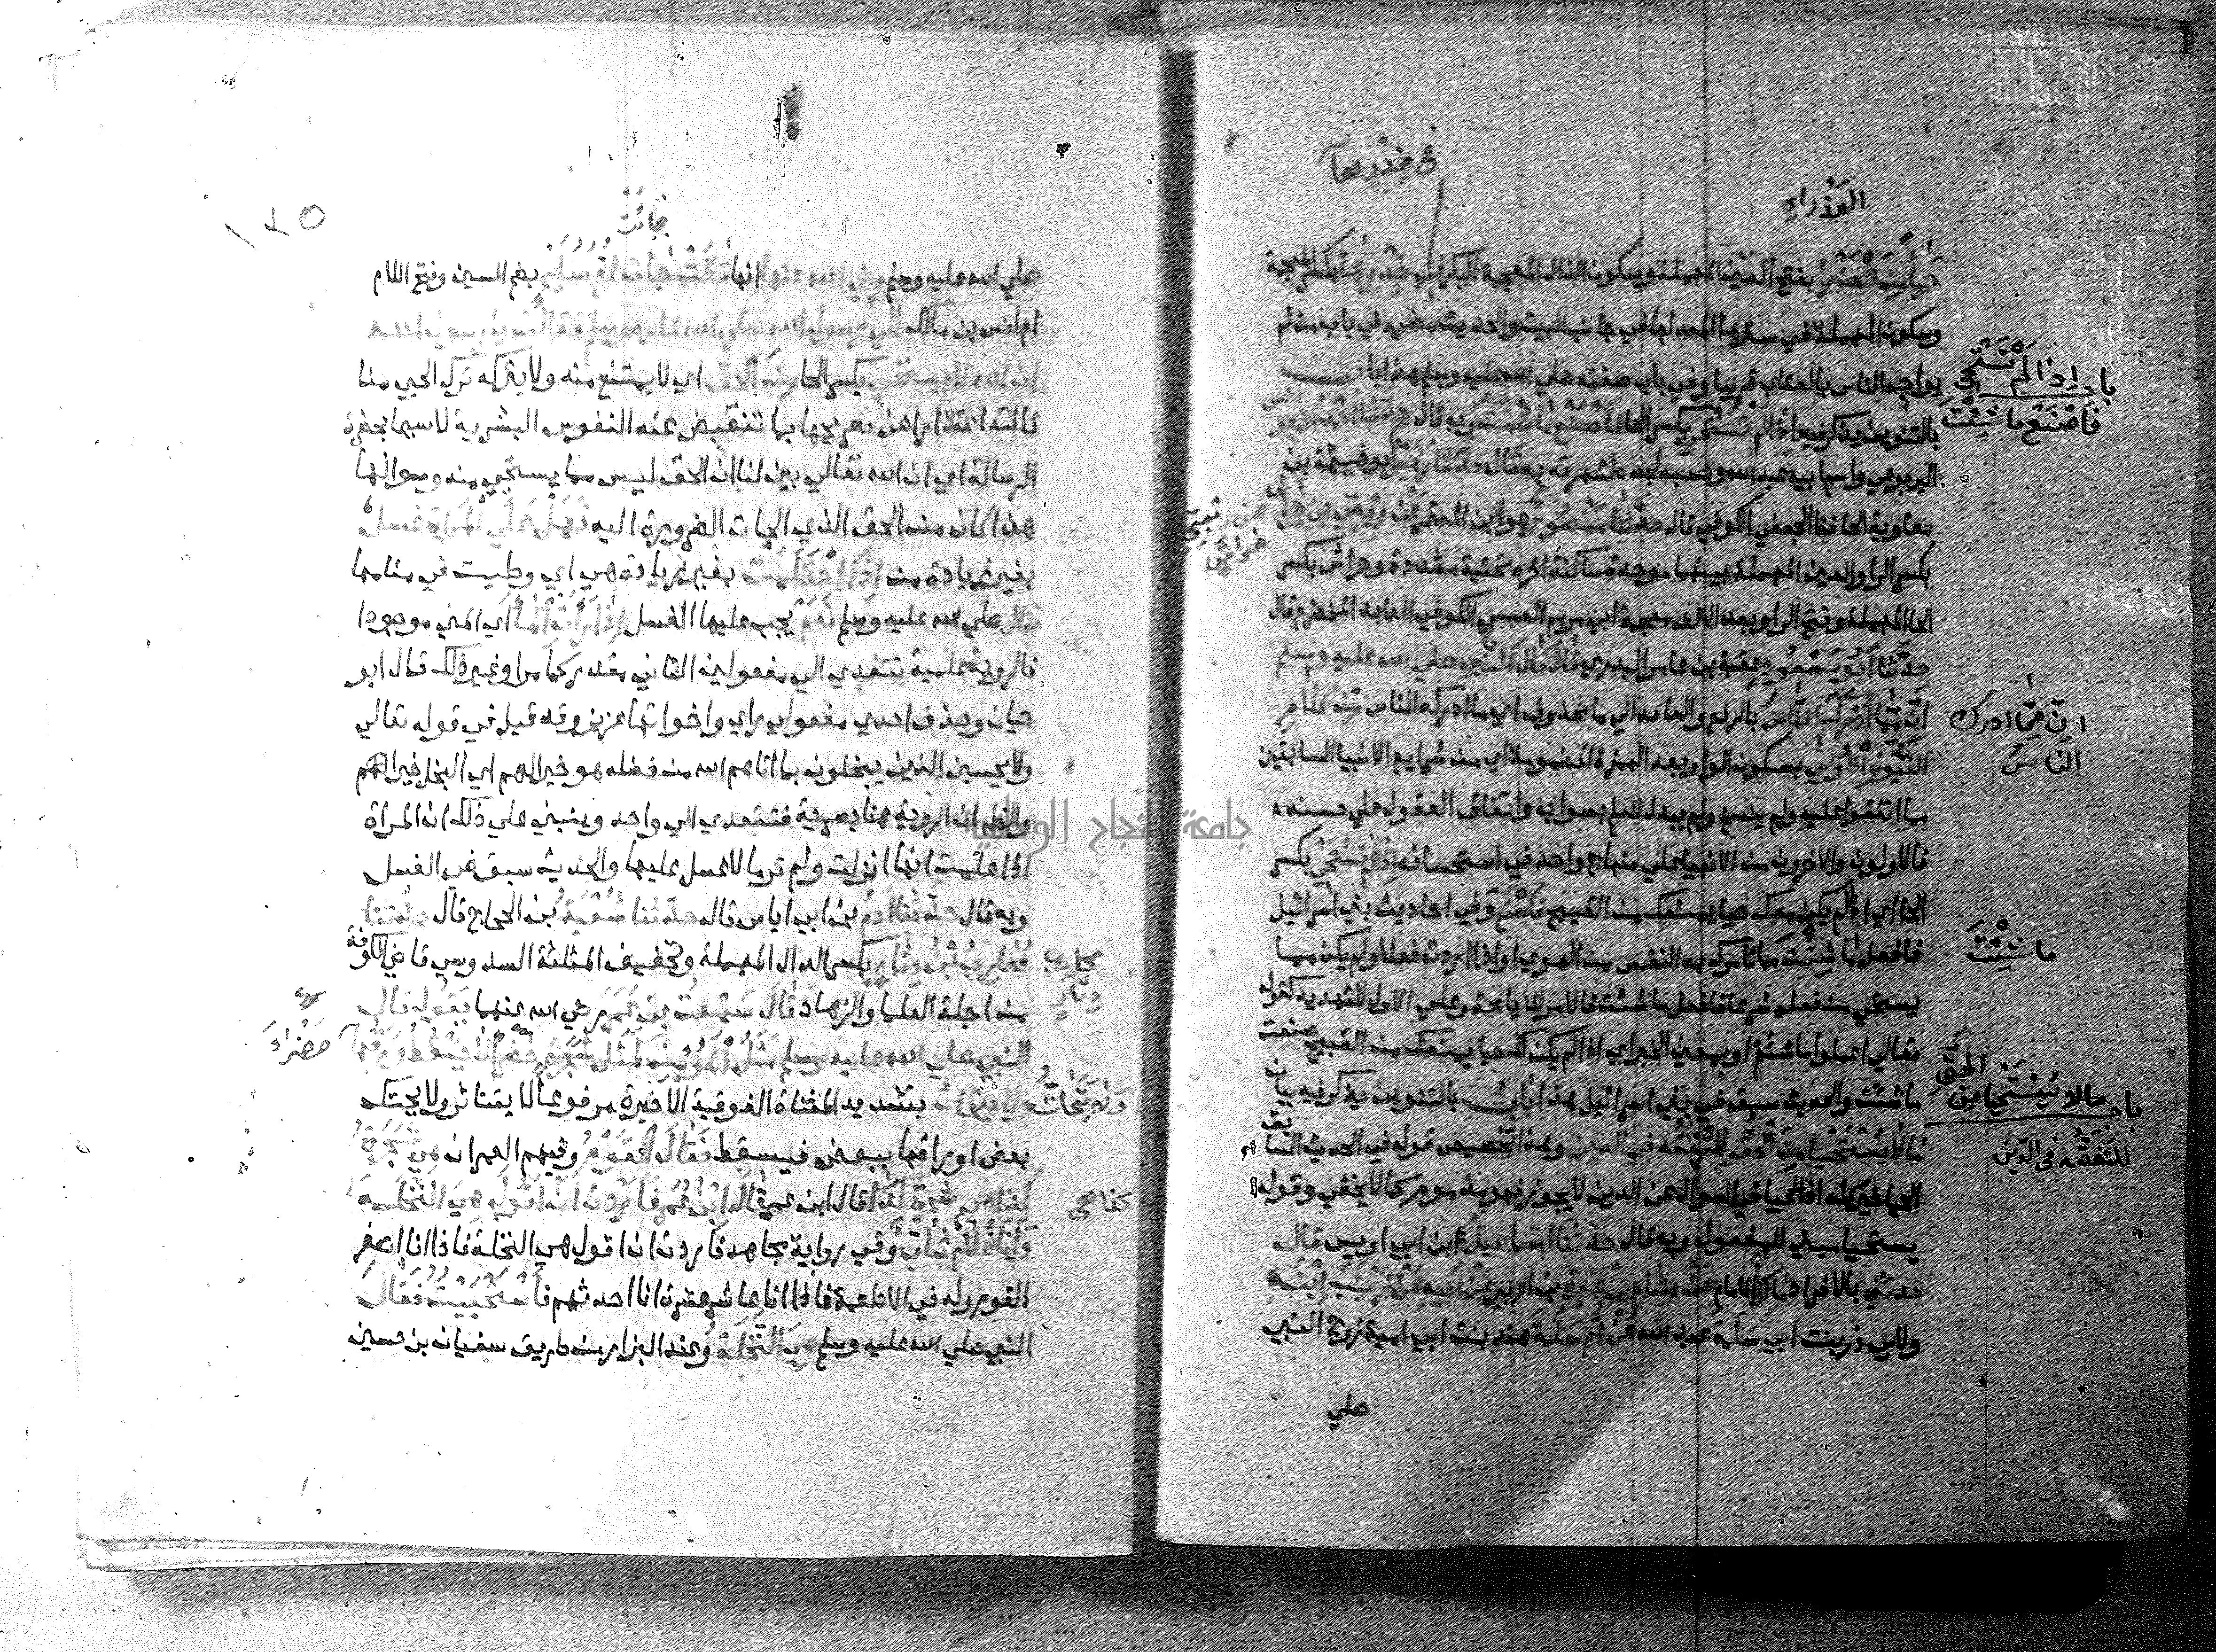 في خدرها
العذراء
حياء من العذراء بفتح العين المهملة وسكون الذال المعجمة البكر في خدرها بكسر المعجمة
وسكون المهملة في سترها المعد لها في جانب البيت والحديث مضى في باب من لم
يواجه الناس بالعتاب قريبا وفي باب صفته صلي الله عليه وسلم هذا باب
باب إذا لم تستحي
فاصنع ما شئت
بالتنوين يذكر فيه اذا لم تستحي بكسر الحا فاصنع ما شئت وبه قال حدثنا احمد بن يونس
اليربوعي واسم ابيه عبد الله ونسبه لجده لشهرته به قال حدثنا زهير ابو خيثمة بن
معاوية الحافظ الجعفي الكوفي قال حدثنا منصور هو ابن المعتمر عن ربعي بن حراش
عن ربعي
حراش
بكسر الرا والعين المهملة بينهما موحدة ساكنة اخره تحتية مشددة وحراش بكسر
الحا المهملة وفتح الرا وبعد الالف معجمة ابي مريم العبسي الكوفي العابد المخضرم قال
حدثنا ابو مسعود عقبة بن عامر البدري قال قال النبي صلي الله عليه وسلم
ان مما ادرك الناس بالرفع والعائد الي ما محذوف اي ما ادركه الناس من كلام
ان مما ادرك
الناس
النبوة الأولي بسكون الواو بعد الهمزة المضمومة اي من شرايع الانبيا السابقين
مما اتفقوا عليه ولم ينسخ ولم يبدل للعلم بصوابه واتفاق العقول علي حسنه
فالاولون والاخرون من الانبيا علي منهاج واحد في استحسانه اذا لم تستحي بكسر
الحا اي اذا لم يكن معك حيا يمنعك من القبيح فاصنع وفي احاديث بني اسرائيل
فافعل ما شئت ما تامرك به النفس من الهوي او اذا اردت فعلا ولم يكن مما
ما شئت
يستحي من فعله شرعا فافعل ما شئت فالامر للاباحة وعلي الاول للتهديد كقوله
تعالي اعملوا ما شئتم او بمعني الخبر اي اذا لم يكن لك حيا يمنعك من القبيح صنعت
ما شئت والحديث سبق في بني اسرائيل هذا باب بالتنوين يذكر فيه بيان
باب ما لا يستحيا من الحق
للتفقه في الدين
ما لا يستحيا من الحق للتفقه في الدين وهذا تخصيص قوله في الحديث السابق
الحيا خير كله اذ الحيا في السوال عن الدين لا يجوز فهو مذموم كما لا يخفي وقوله
يستحيا مبني للمفعول وبه قال حدثنا اسماعيل ابن ابي اويس قال
حدثني بالافراد مالك الامام عن هشام بن عروة بن الزبير عن ابيه عن زينب ابنة
ولابي ذر بنت ابي سلمة عبد الله عن ام سلمة هند بنت ابي امية زوج النبي
صلي
١٢٥
جائت
صلي الله عليه وسلم رضي الله عنها انها قالت جات ام سليم بضم السين وفتح اللام
ام انس بن مالك الي رسول الله صلي الله عليه وسلم فقالت يا رسول الله
ان الله لا يستحي بكسر الحا من الحق اي لا يمتنع منه ولا يتركه ترك الحيي منا
قالته اعتذارا عن تصريحها بما تنقبض عنه النفوس البشرية لا سيما بحضرة
الرسالة اي ان الله تعالي بين لنا ان الحق ليس مما يستحي منه وسوالها
هذا كان من الحق الذي الجات الضرورة اليه فهل علي المراة غسل
بغير زيادة من اذا احتلمت بغير زيادة هي اي وطيت في منامها
فقال صلي الله عليه وسلم نعم يجب عليها الغسل اذا رات الماء اي المني موجودا
فالروية علمية تتعدي الي مفعولين الثاني مقدر كما مر او غير ذلك قال ابو
حيان وحذف احدي مفعولي راي واخواتها عزيز وقد قيل في قوله تعالي
ولا يحسبن الذين يبخلون بما اتاهم الله من فضله هو خيرا لهم اي البخل خيرا لهم
والظاهر ان الروية هنا بصرية فتتعدي الي واحد وينبني علي ذلك ان المراة
اذا علمت انها انزلت ولم تره لا غسل عليها والحديث سبق في الغسل
وبه قال حدثنا ادم بن ابي اياس قال حدثنا شعبة بن الحجاج قال حدثنا
محارب بن دثار بكسر الدال المهملة وتخفيف المثلثة السدوسي قاضي الكوفة
محارب
دثار
من اجلة العلما والزهاد قال سمعت بن عمر رضي الله عنهما يقول قال
النبي صلي الله عليه وسلم مثل المؤمن كمثل شجرة خضرا لا يسقط ورقها
خضراء
ولا يتحات بتشديد المثناة الفوقية الاخيرة مرفوعا لا يتناثر ولا يحتك
ولا يتحات
بعض اوراقها ببعض فيسقط فقال القوم وفيهم العمران هي شجرة
كذا هي شجرة كذا قال ابن عمر قال ابن عمر فاردت ان اقول هي النخلة
كذا هي
وانا غلام شاب وفي رواية مجاهد فاردت ان اقول هي النخلة فاذا انا اصغر
القوم وله في الاطعمة فاذا انا عاشر عشرة انا احدثهم فاستحييت فقال
النبي صلي الله عليه وسلم هي النخلة وعند البزار من طريق سفيان بن حسين